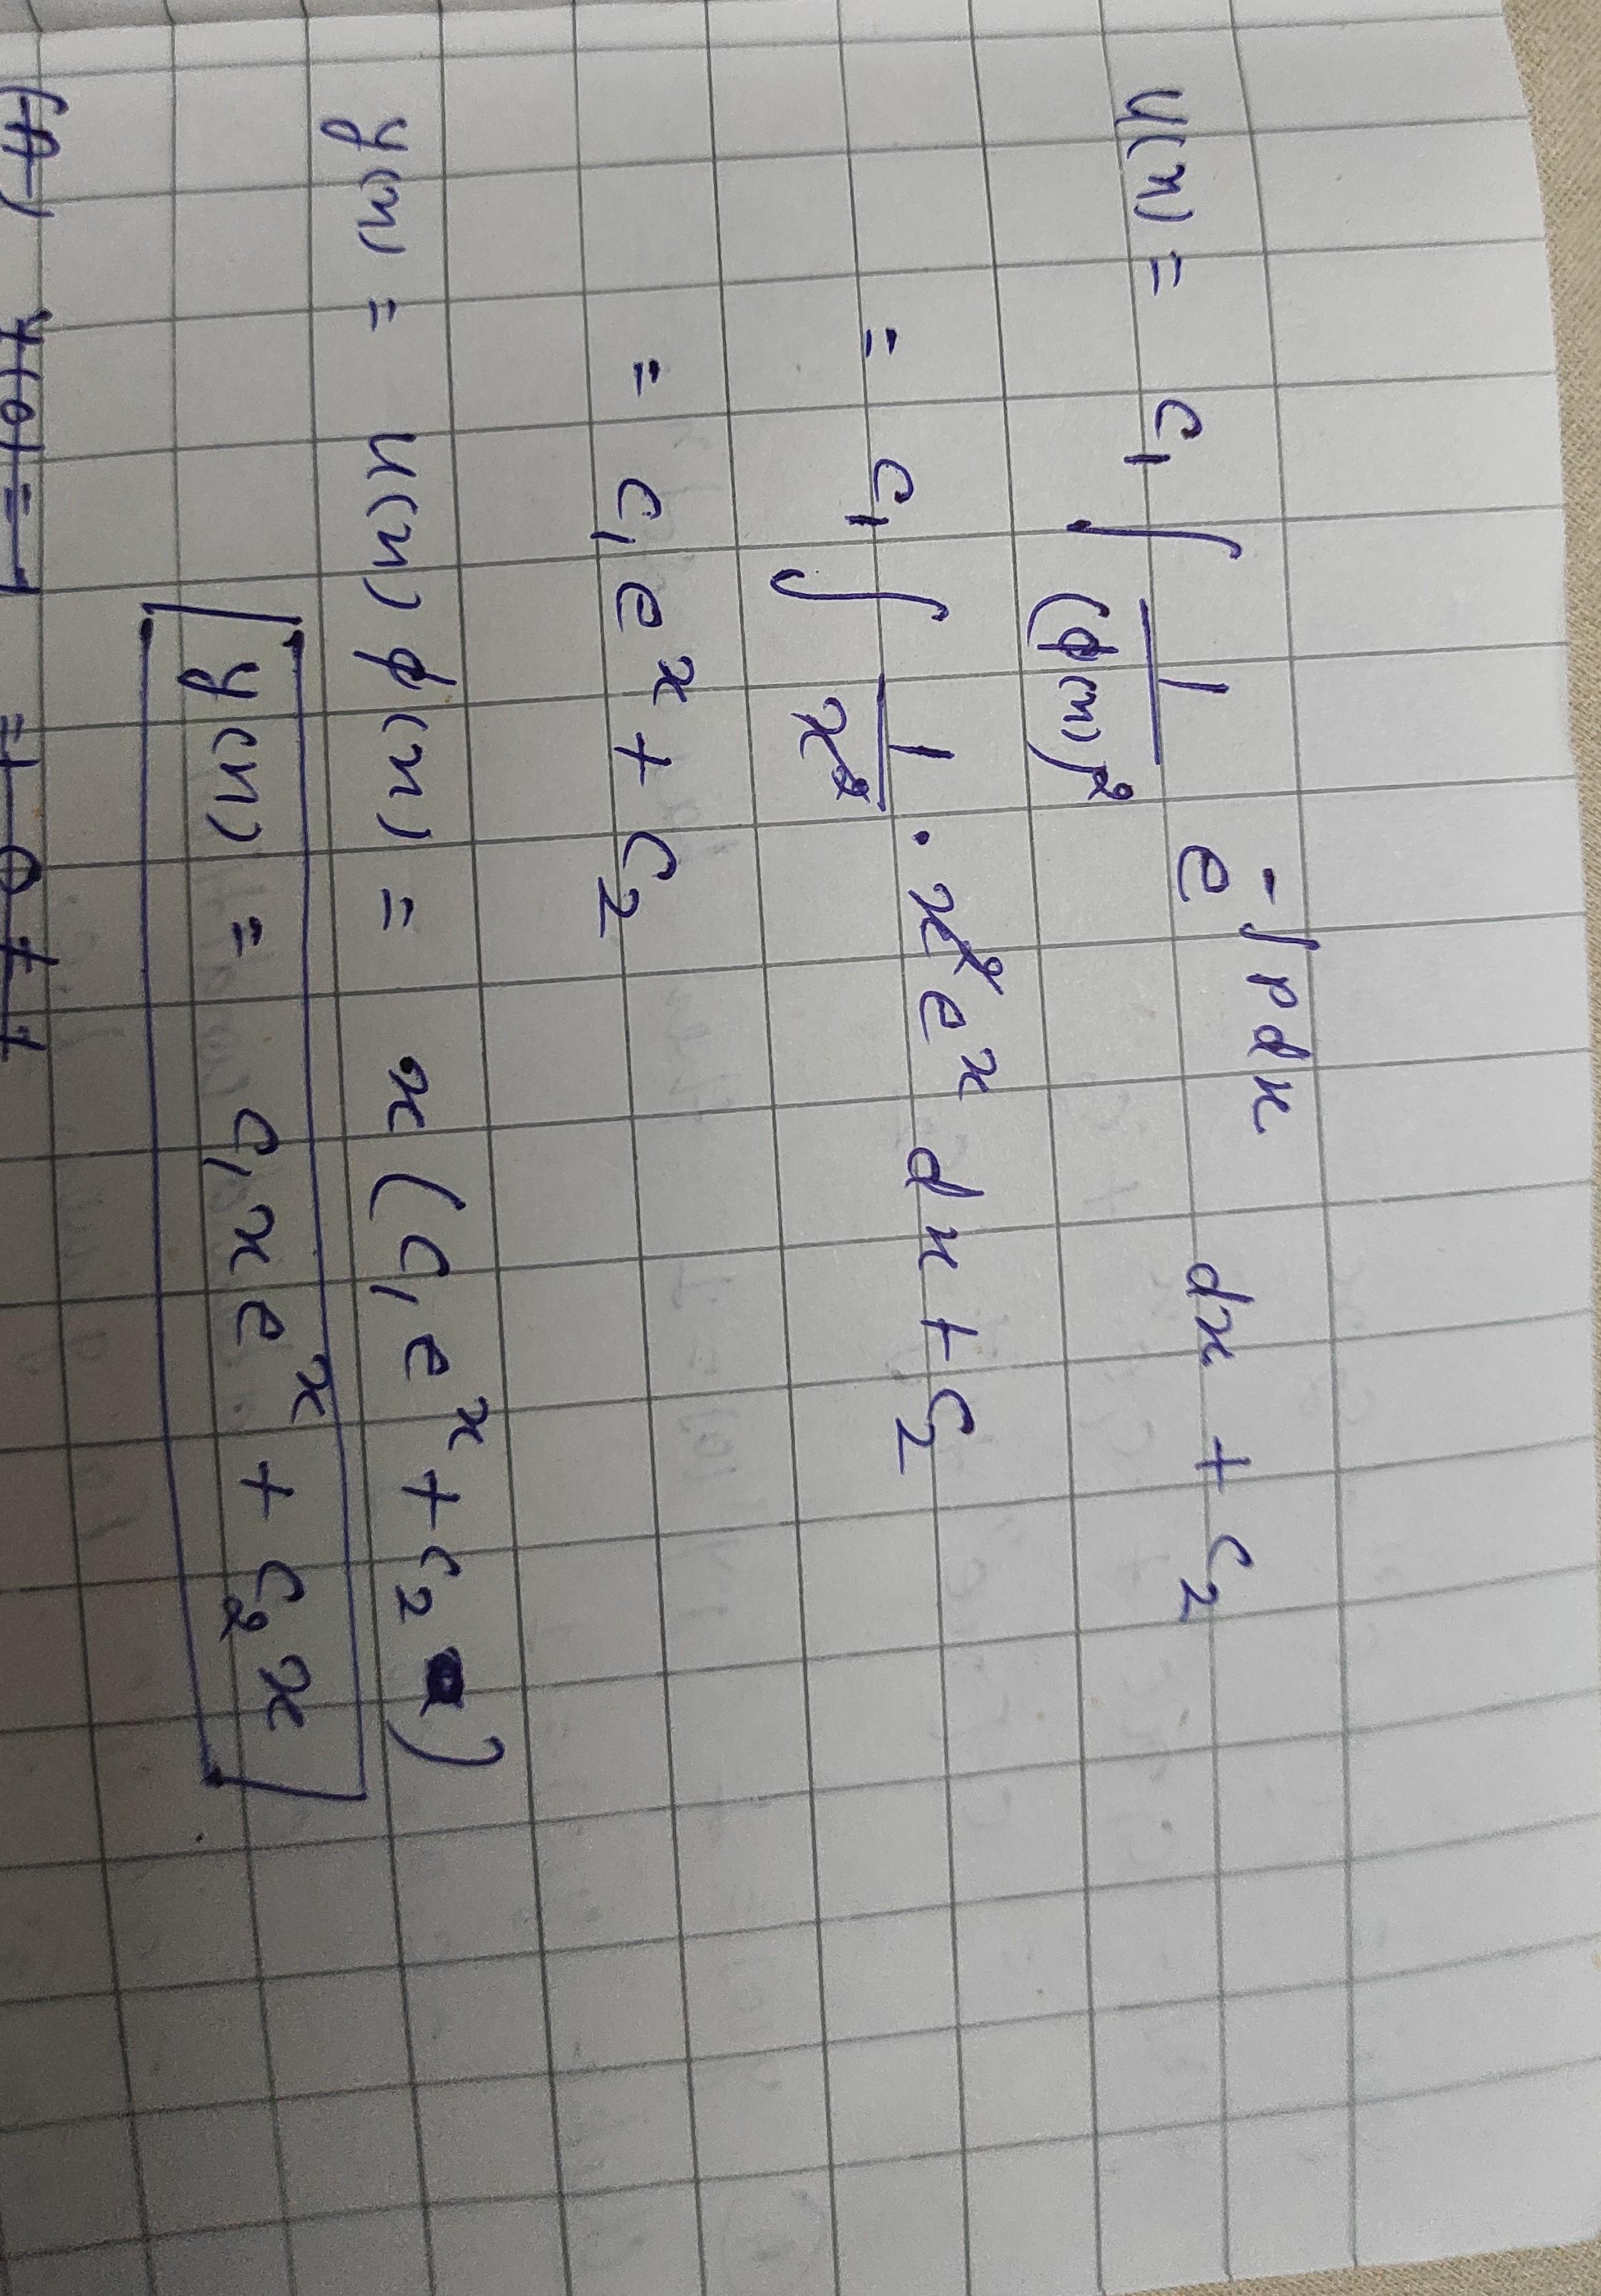 u(x) = c₁ ∫ 1/(ϕ(x))² e^(-∫pdx) dx + c₂
= c₁ ∫ 1/x² · x² eˣ dx + c₂
= c₁eˣ + c₂
y(x) = u(x) ϕ(x) = x (c₁ eˣ + c₂ )
y(x) = c₁xeˣ + c₂x